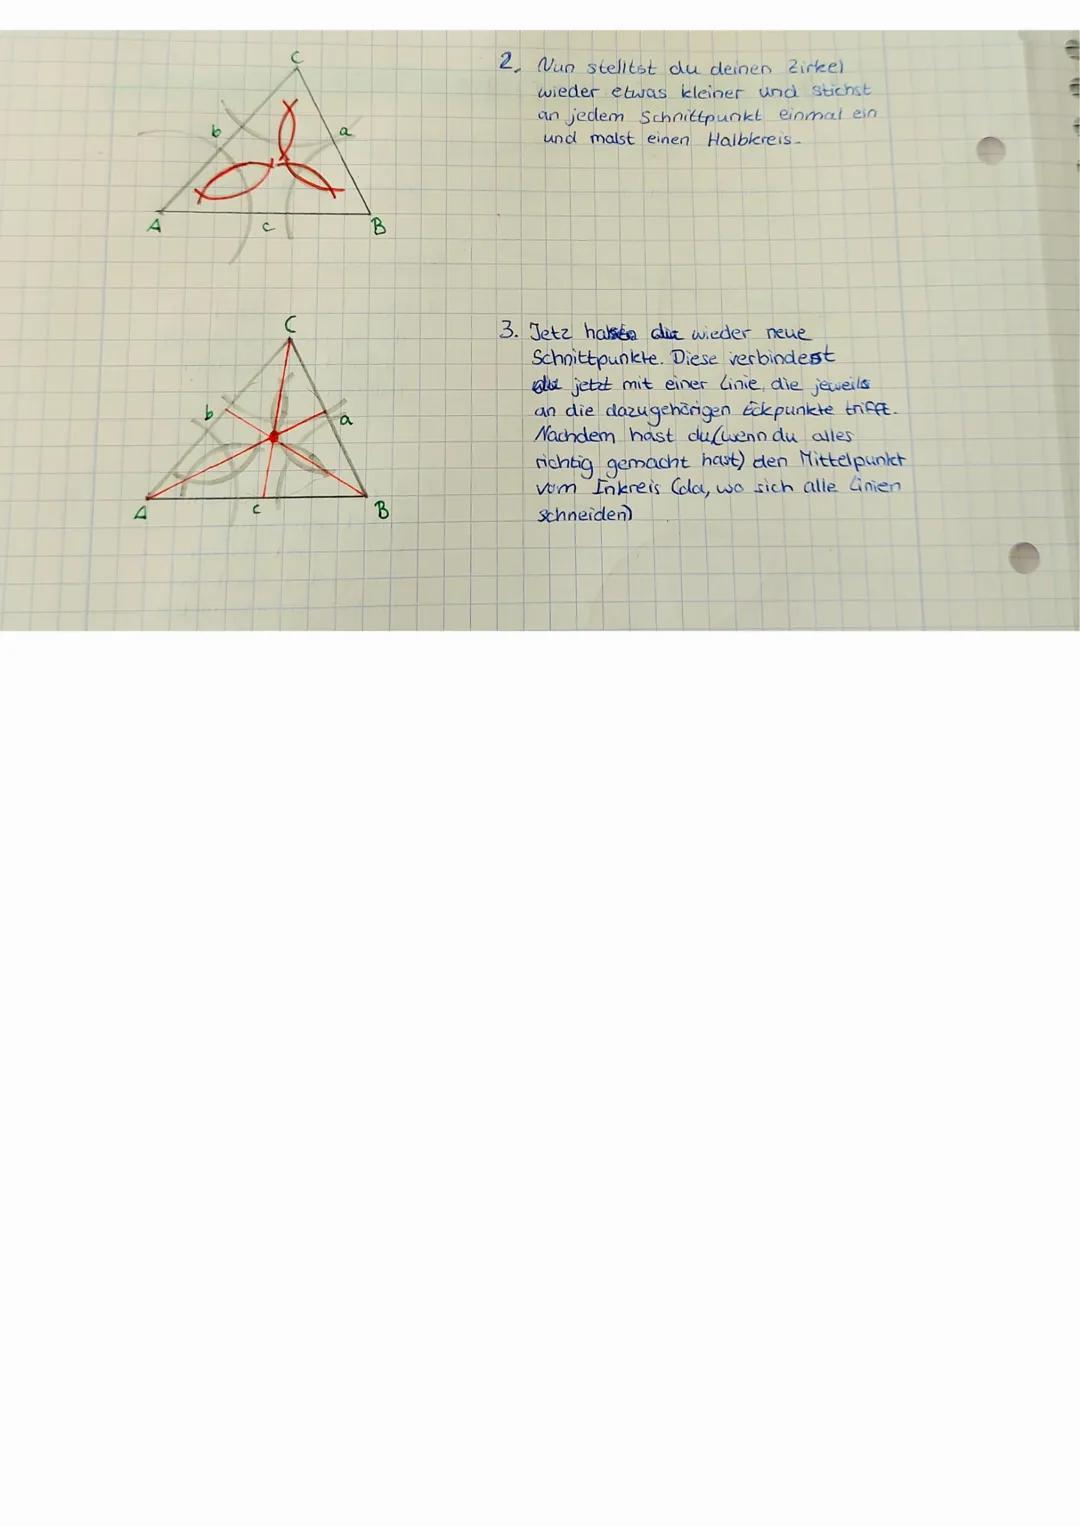 C
b
a
A
c
B
2. Nun stelltst du deinen Zirkel
wieder etwas kleiner und stichst
an jedem Schnittpunkt einmal ein
und malst einen Halbkreis.
C
b
a
A
c
B
3. Jetz wieder neue
Schnittpunkte. Diese verbindest
jetzt mit einer Linie, die jeweils
an die dazugehörigen Eckpunkte trifft.
Nachdem hast du (wenn du alles
richtig gemacht hast) den Mittelpunkt
vom Inkreis (da, wo sich alle Linien
schneiden)